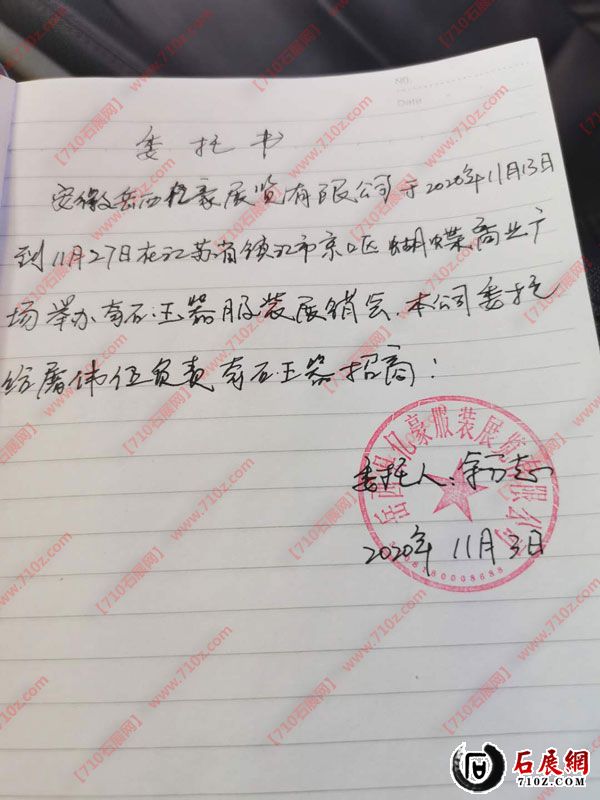 NO.
Date
委托书
安徽岳西程豪展览有限公司于2020年11月13日
到11月27日在江苏省镇江市京口区蝴蝶商业广
场举办奇石玉器服装展销会.本公司委托
给屠伟伍负责奇石玉器招商:
委托人:余
2020年11月3日
豪服装展销有限公司
【710石展网】 www.710z.com
石展網
710z.com